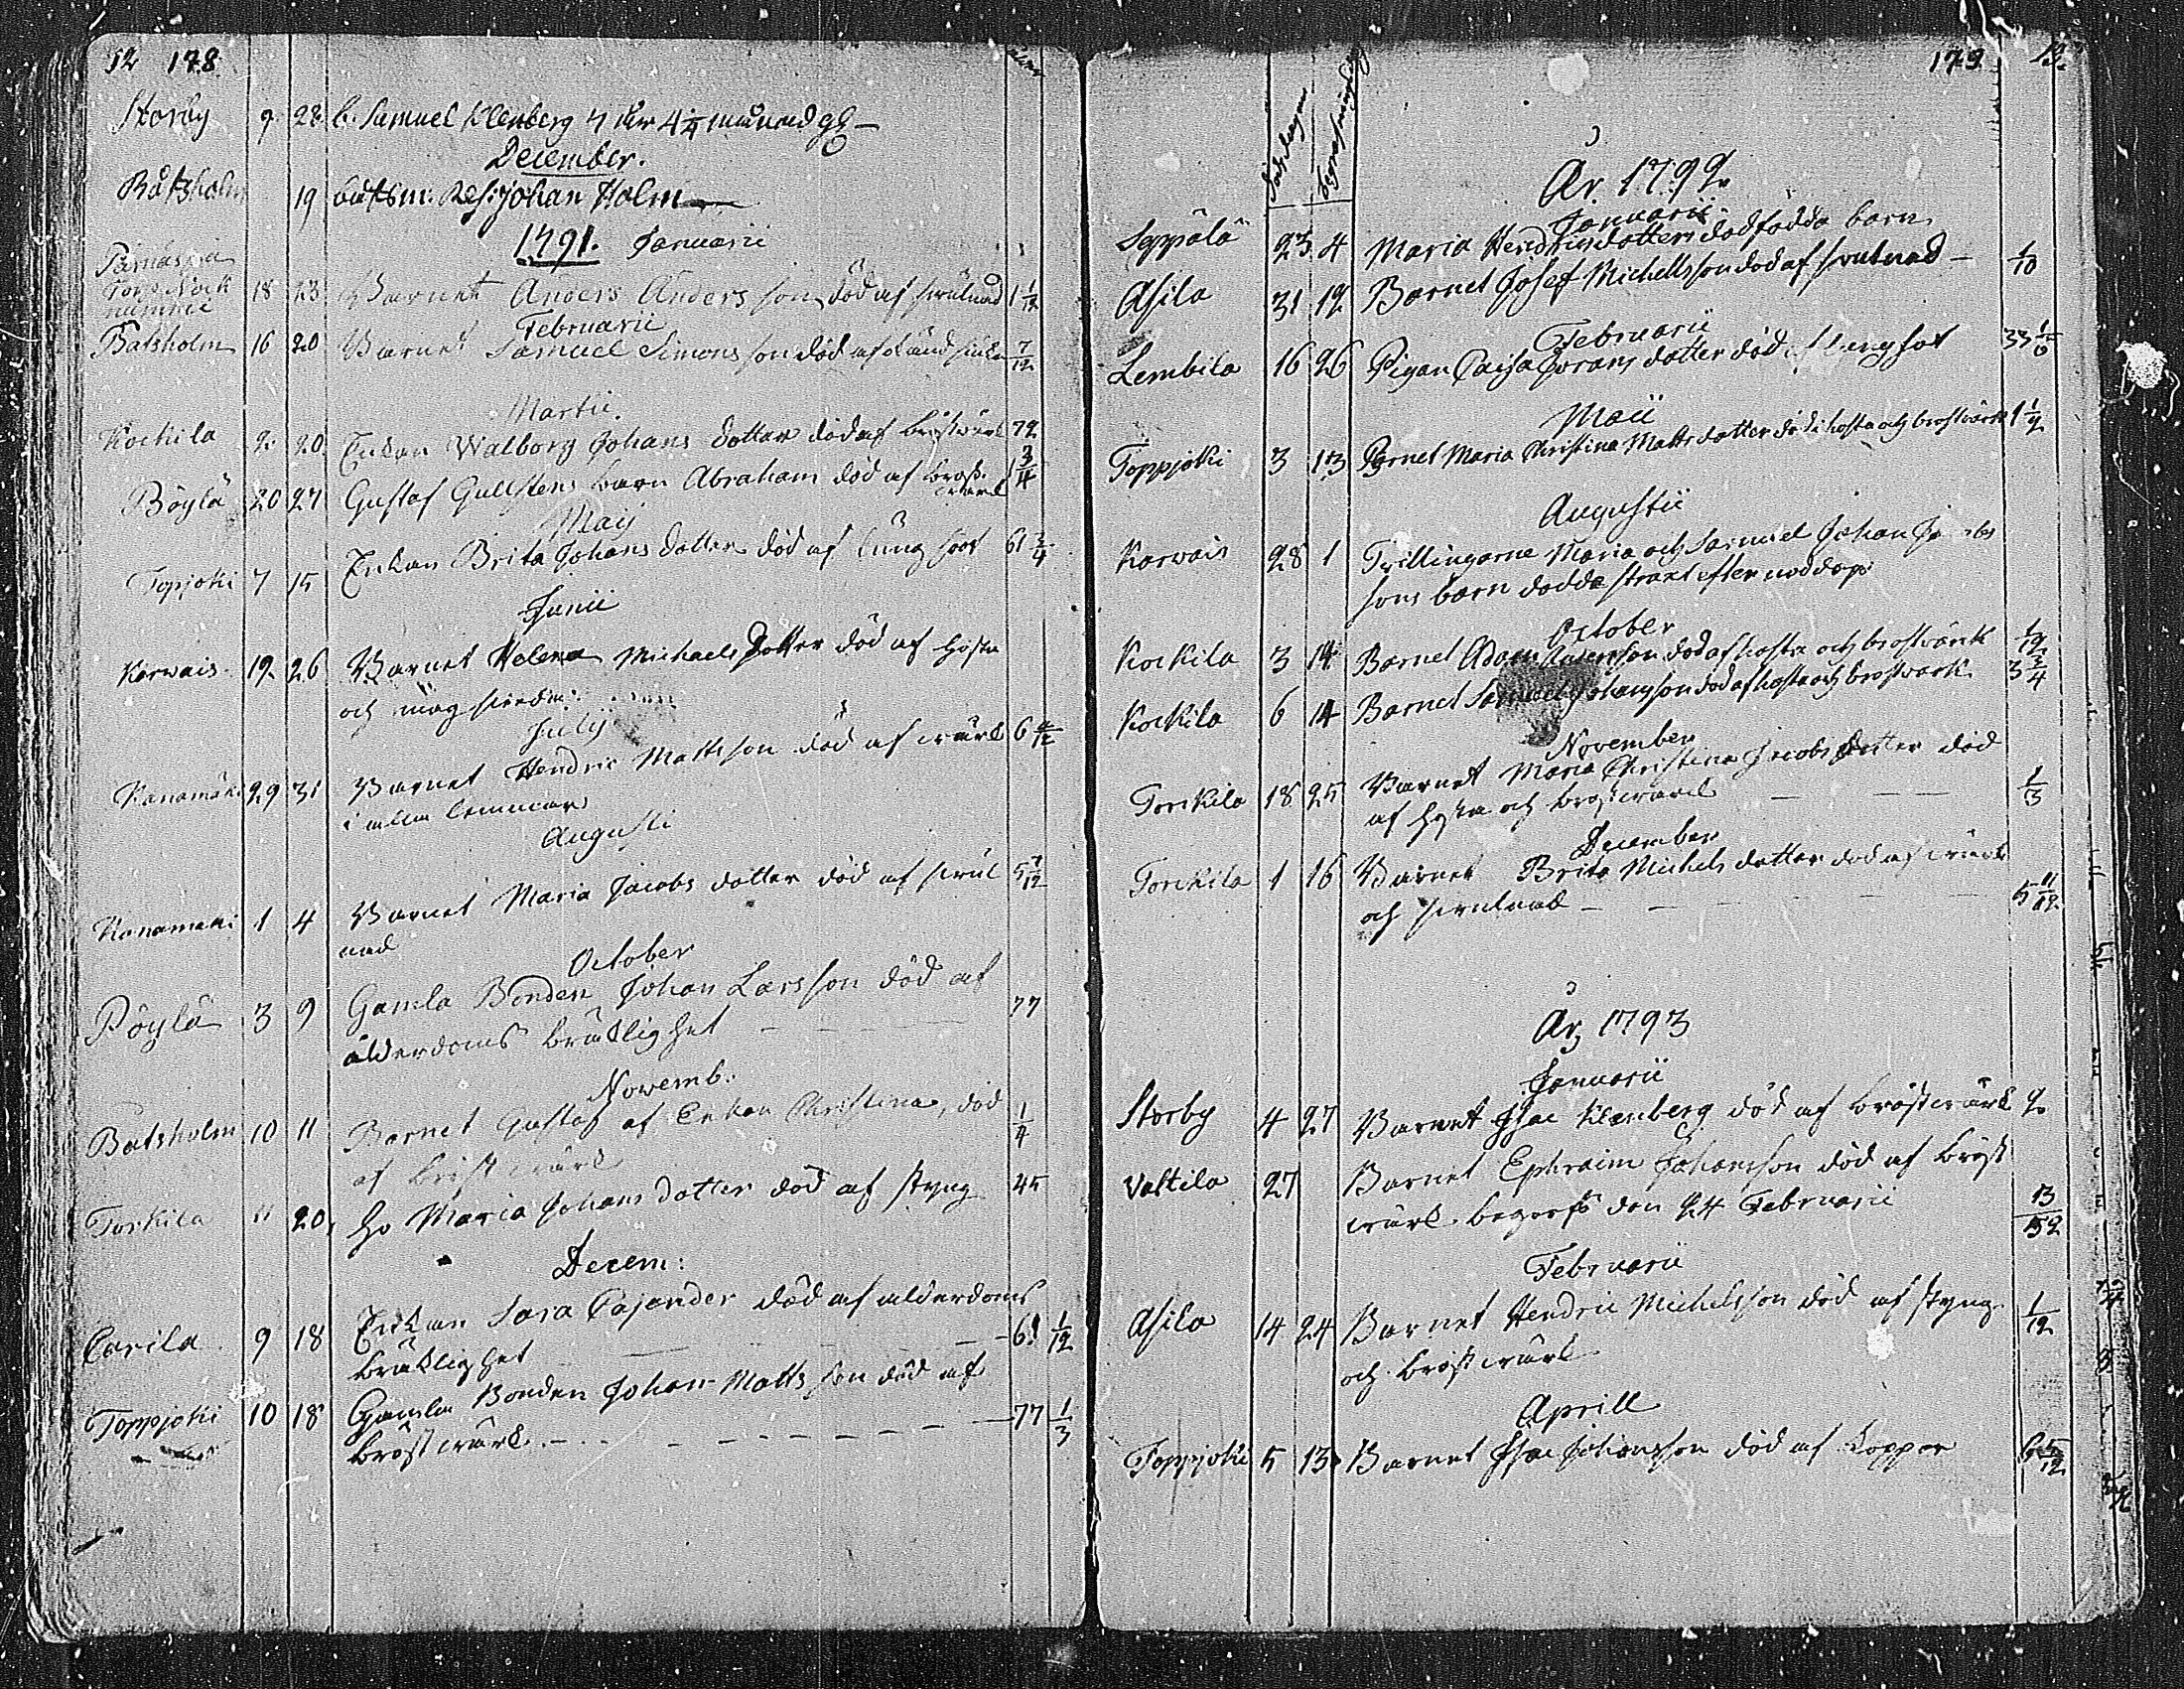 52 178
Storby 9 28 b. Samuel Klenberg 7 åhr 4 1/4 månad gl
December.
Båtsholm 19 båtsm: Res: Johan Holm
1791. Januarii
18 23 Barnet Anders Andersson död af 1 1/12
Februarii
Batsholm 16 20 Barnet Samuel Simonsson död af 7/12
Martii.
Kockila 2 20 Enkan Walborg Johans dotter död af bröstvärk 72
Böylä 20 27 Gustaf Gullstens barn Abraham död af bröst 1 3/4
värk
Maij
Topjoki 7 15 Enkan Brita Johans dotter död af lung soot 61 3/4
Junii
Karwais 19 26 Barnet Helena Michaels Dotter död af hosta
och
Julij
Kanamäki 29 31 Barnet Hendric Mattsson död af wärk 6
i alla lemmar
Augusti
Kanamäki 1 4 Barnet Maria Jacobs dotter död af 5 7/12
nad
October
Pöylä 3 9 Gamla Bonden Johan Larsson död af 77
ålderdoms bräklighet
Novemb.
Batsholm 10 11 Barnet Gustaf af Enkan Christina, död 1/4
af bröst wärk
Torkila 11 20 Ho Maria Johans dotter död af styng 45
Decem:
Carila 9 18 Enkan Sara Cajander död af ålderdoms
bräklighet 61 1/12
Toppjoki 10 18 Gamla Bonden Johan Matts son död af
bröst wärk 77 1/3
179 13.
Dödsdagen
År 1792
Januarii
Seppälä 23 4 Maria Hendricsdotters dödfödda barn
Asila 31 12 Barnet Josef Michelsson död af 1/10
Februarii
Lembila 16 26 Pigan Caisa Görans dotter död af lungsot 33 1/6
Maii
Toppjoki 3 13 Barnet Maria Christina Matts dotter död i hosta och bröstvärk 1 1/2
Augustii
Karwais 28 1 Tvillingarne Maria och Samuel Johan Jacobs
sons barn dödde straxt efter nöddop
October
Kockila 3 14 Barnet Adam Andersson död af hosta och bröstvärk 1/12
Kockila 6 14 Barnet Samuel Johansson död af hosta och bröstvärk 3 3/4
November
Torckila 18 25 Barnet Maria Christina Jacobs dotter död
af hosta och bröstwärk 1/3
December
Torckila 1 16 Barnet Brita Michels dotter död af wärk
och 5 11/12
År 1793
Januarii
Storby 4 27 Barnet Isac Klenberg död af bröstwärk 2
Valtila 27 Barnet Ephraim Johansson död af bröst
wärk begrofs den 24 Februarii 13/52
Februarii
Asila 14 24 Barnet Hendric Michelsson död af styng 1/12
och bröst wärk
Aprill
Toppjoki 5 13 Barnet Isac Johansson död af koppor 6 5/12